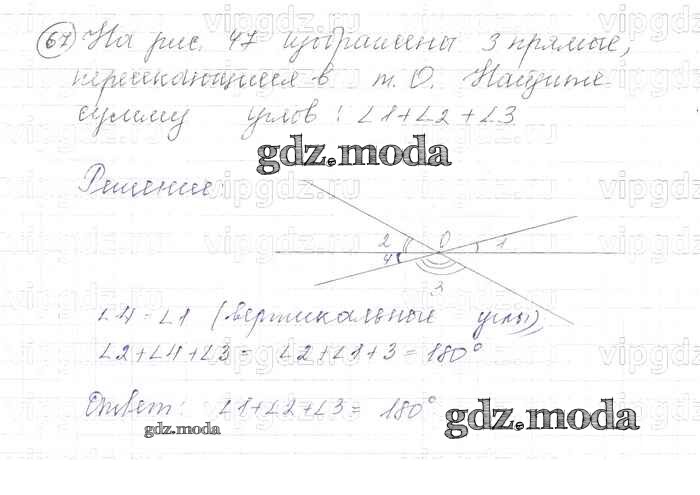 67 На рис. 47 изображены 3 прямые,
пересекающиеся в т. О. Найдите
сумму углов: ∠1+∠2+∠3.
gdz.moda
Решение:
2 О 1
4
3
∠4=∠1 (вертикальные углы)
∠2+∠4+∠3= ∠2+∠1+3=180°
Ответ: ∠1+∠2+∠3= 180°
gdz.moda
gdz.moda